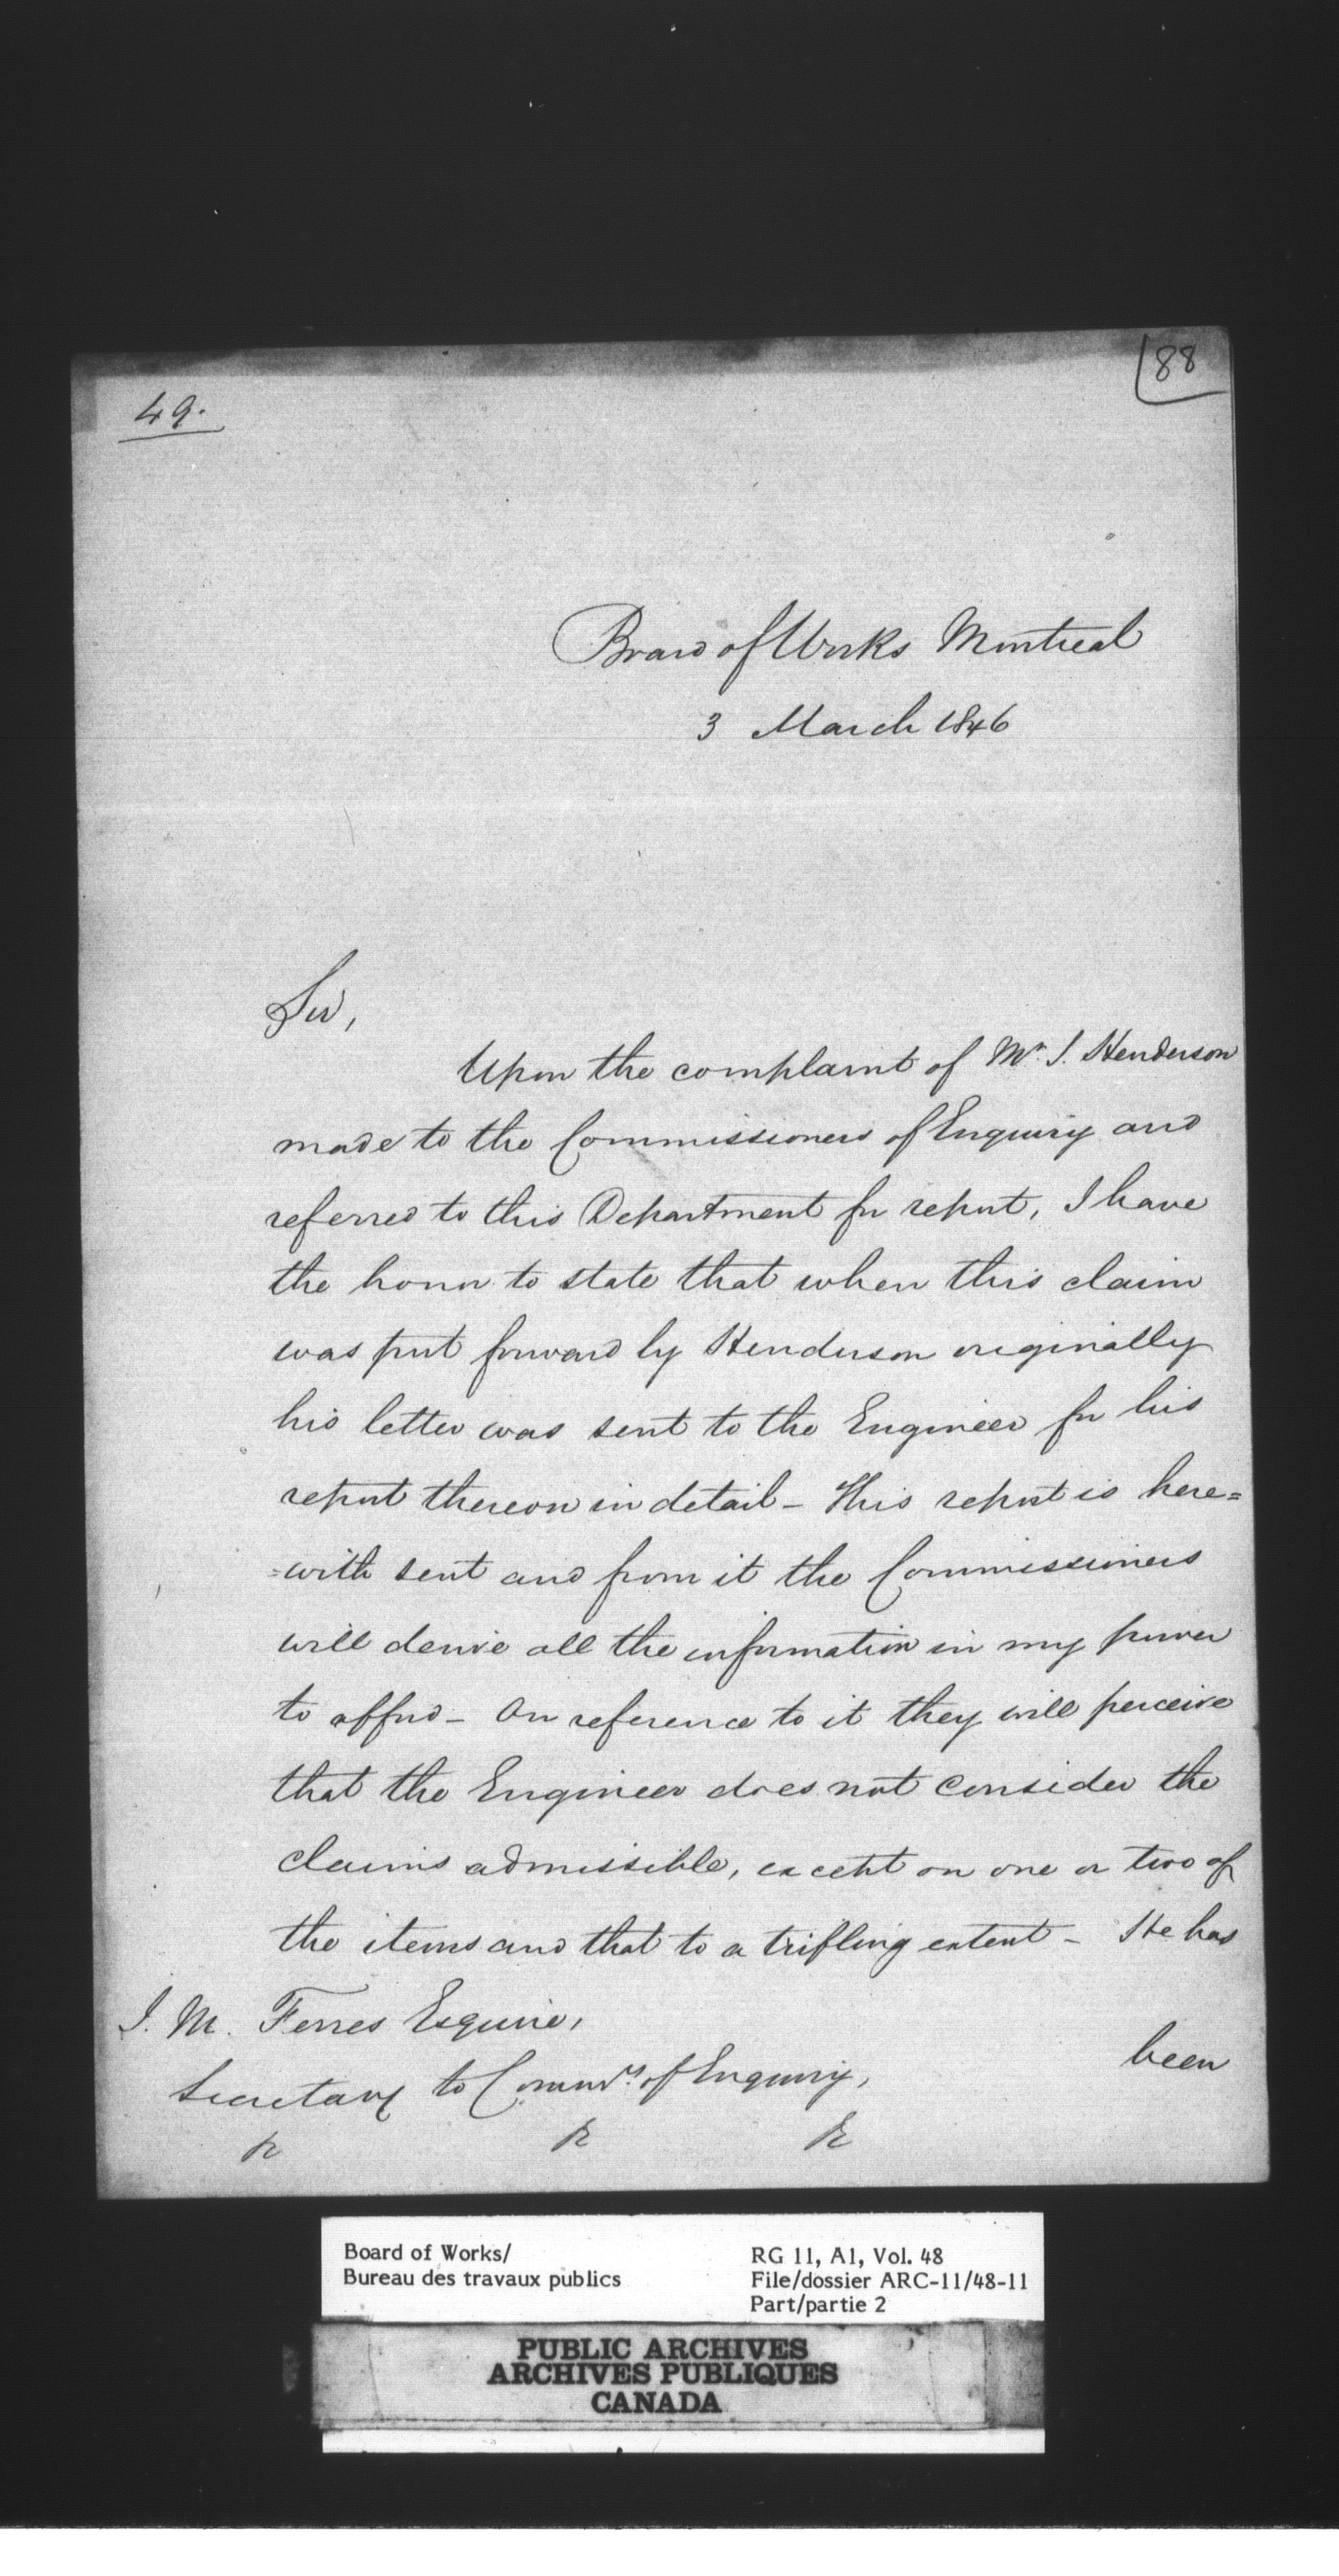 88
49.
Board of Works Montreal
3 March 1846
Sir,
Upon the complaint of Mr. J. Henderson
made to the Commissioners of Enquiry and
referred to this Department for report, I have
the honor to state that when this claim
was put forward by Henderson originally
his letter was sent to the Engineer for his
report thereon in detail - This report is here=
=with sent and from it the Commissioners
will derive all the information in my power
to afford - On reference to it they will perceive
that the Engineer does not consider the
claims admissible, except on one or two of
the items and that to a trifling extent - He has
J. M. Ferres Esquire,
been
Secretary to Commrs. of Enquiry,
&c &c &c
Board of Works/
Bureau des travaux publics
RG 11, A1, Vol. 48
File/dossier ARC-11/48-11
Part/partie 2
PUBLIC ARCHIVES
ARCHIVES PUBLIQUES
CANADA